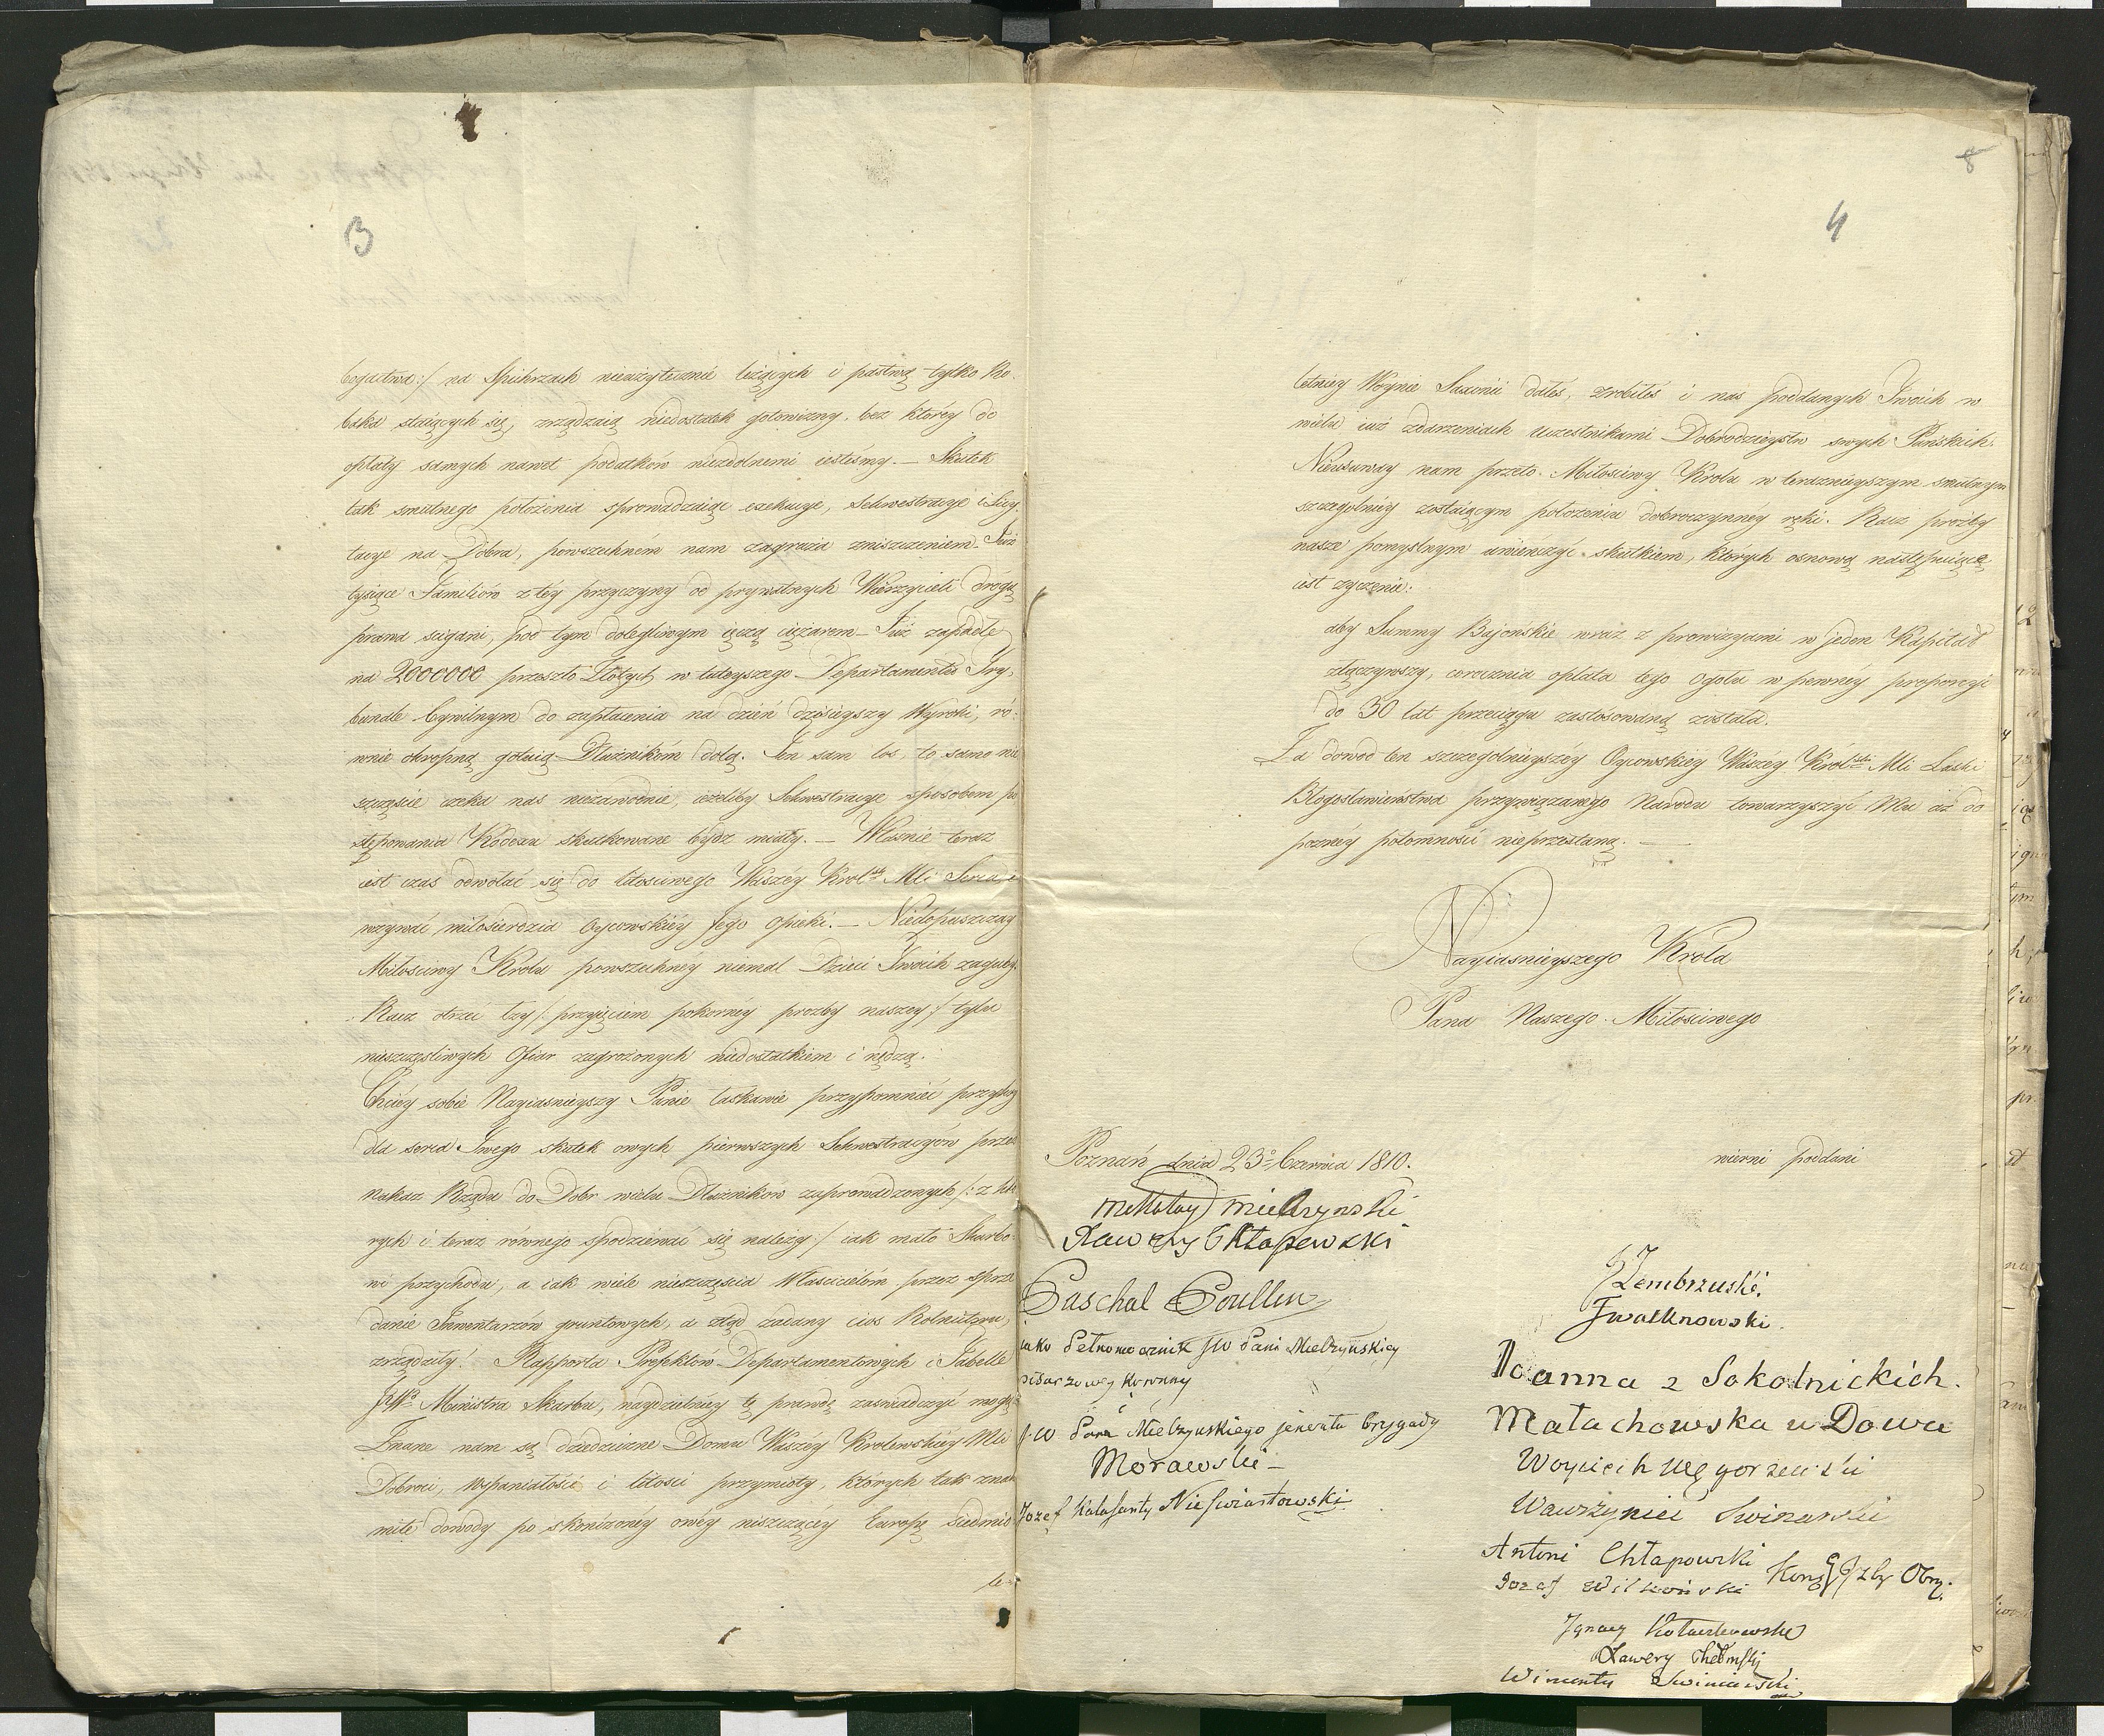 3
bogactwa:/ na Spihrzach nieużytecznie leżących i pastwą tylko Ro-
baka staiących się, zrządzaią niedostatek gotowizny, bez którey do
opłaty samych nawet podatków niezdolnemi iesteśmy. — Skutek
tak smutnego położenia sprowadzaiąc exekucye, Sekwestracye i Licy-
tacye na Dobra, powszechném nam zagraża zniszczeniem. Już
tysiące Familiów z téy przyczyny od prywatnych Wierzycieli drogą
prawa ścigani, pod tym dolegliwym ięczą ciężarem — Już zapadłe
na 2000000 przeszło Złotych w tuteyszego Departamentu Try-
bunale Cywilnym do zapłacenia na dzień dzisieyszy Wyroki, ró-
wnie okropną gotuią Dłużnikóm dolę. Ten sam los, to samo nie
szczęście czeka nas niezawodnie, ieżeliby Sekwestracye sposobem po
stępowania Kodexu skutkowane bydź miały. — Właśnie teraz
iest czas odwołać się do litościwego Waszéy Krol. Mci Serca i
wzywać miłosierdzia Oycowskiéy Jego opieki. — Niedopuszczay
Miłościwy Królu powszechnéy niemal Dzieci Twoich zaguby.
Racz otrzeć łzy /: przyięciem pokornéy prozby naszey :/ tylu
nieszczęśliwych Ofiar zagrożonych niedostatkiem i nędzą.
Chciéy sobie Nayiaśnieyszy Panie łaskawie przypomnieć przykry
dla serca Twego skutek owych pierwszych Sekwestracyów przez
nakaz Rządu do Dobr wielu Dłużników zaprowadzonych /: z któ
rych i teraz równego spodziewać się należy :/ iak mało Skarbo-
wi przychodu, a iak wiele nieszczęścia Właścicielóm przez sprze
danie Inwentarzów gruntowych, a ztąd zadany cios Rolnictwu,
zrządziły! Rapporta Prefektów Departamentowych i Tabelle
JW. Ministra Skarbu, nayrzetelniéy tę prawdę zaświadczyć mogą
Znane nam są dziedziczne Domu Waszéy Krolewskiéy Mci
Dobroci, wspaniałości i litości przymioty, których tak znak
mite dowody po skończonéy owéy niszczącéy Europę siedmio-
le-
8
4
letniéy Woynie Saxonii dałeś, zrobiłeś i nas poddanych Twoich w
wielu iuż zdarzeniach uczestnikami Dobrodzieystw swych Pańskich.
Nieusuway nam przeto Miłościwy Krolu w terazniéyszym smutnym
szczegolniéy zostaiącym położeniu dobroczynnéy ręki. Racz proźby
nasze pomyślnym uwieńczyć skutkiem, których osnową następuiące
iest życzenie:
aby Summy Bajońskie wraz z prowizyami w jeden Kapitał
złączywszy, coroczna opłata tego ogółu w pewnéy proporcyi
do 30 lat przeciągu zastosowaną została.
Za dowod ten szczegolnieyszéy Oycowskiéy Waszéy Król. Mci Łaski
Błogosławieństwa przywiązanego Narodu towarzyszyć Mu aż do
poznéy potomności nieprzestaną. —
Nayiasnieyszego Króla
Pana Naszego Miłościwego
Poznań dnia 23° Czerwca 1810.
wierni poddani
Mikołay Mielzynski
Xawery Chłapowski
Paschal Poullin
iako Pełnomocnik JW Pani Mielżyńskiey
pisarzowey Koronny
i
JW Pana Mielżyńskiego jenerała brygady
Morawski —
Jozef Kalasanty Nieświastowski
Zembrzuski
Twalknowski.
Joanna z Sokolnickich
Małachowska w Dowa
Woyciech Węgorzewski
Wawrzyniec Swinarski
Antoni Chłapowski
Jozef Wilkoński
Ignacy Kołaczkowski
Xawery
Wincenty Swiniarski